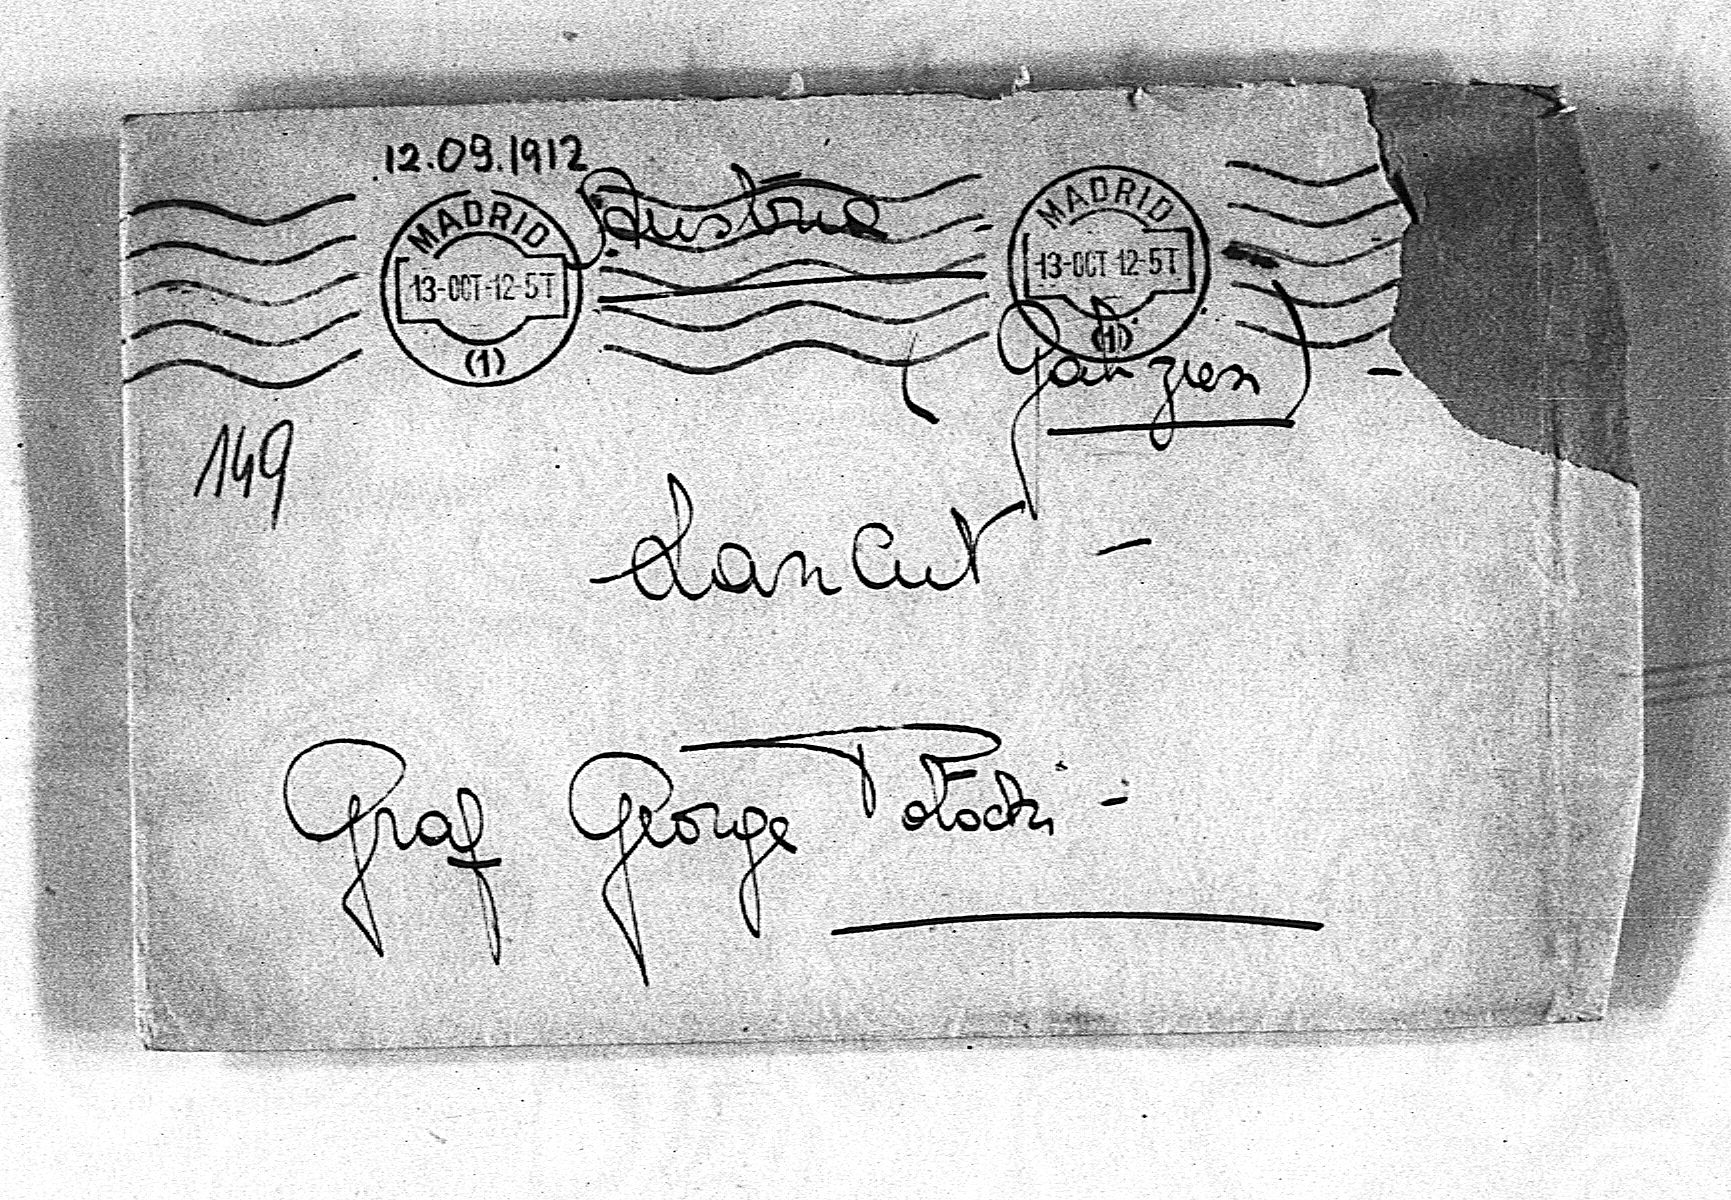 12.09.1912
MADRID
13-OCT-12-5T
(1)
Austria
MADRID
13-OCT 12-5T
(1)
(Galizien)
149
Lancut -
Graf George Potocki -